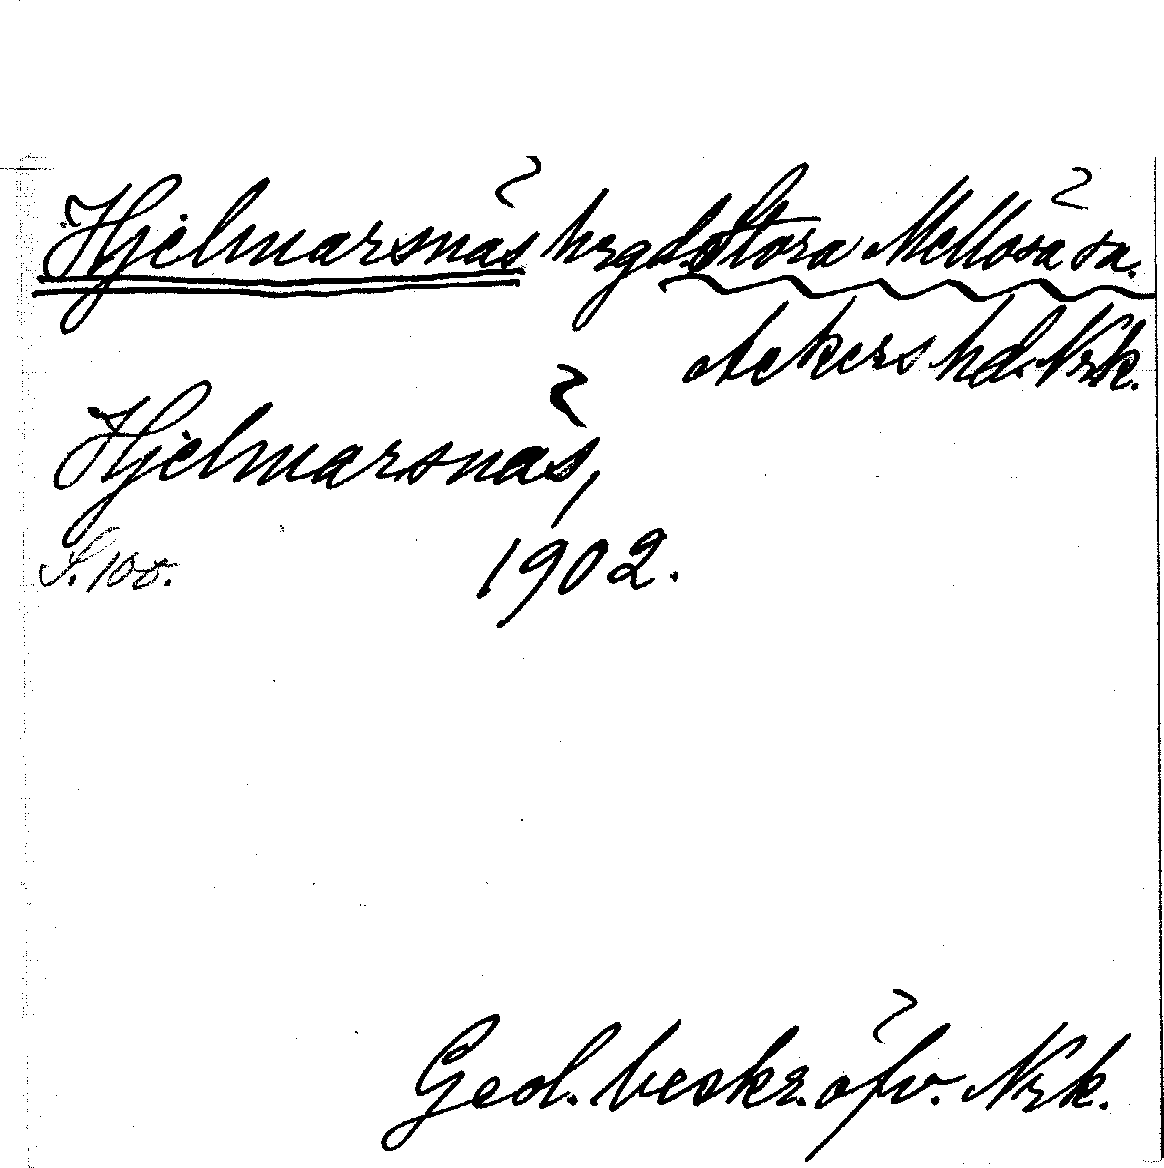 Hjelmarsnäs hrgd Stora Mellösa sn.
Askers hd. Nrk.
Hjelmarsnäs,
S. 100. 1902.
Geol. beskr. öfv. Nrk.